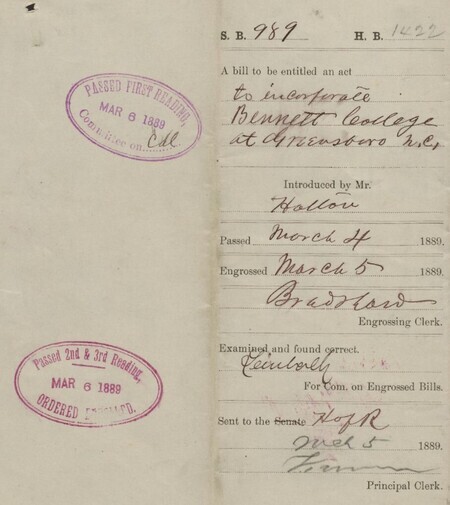 PASSED FIRST READING,
MAR 6 1889
Committee on Cal
Passed 2nd & 3rd Reading,
MAR 6 1889
ORDERED
S. B. 989 H. B. 1422
A bill to be entitled an act
to incorporate
Bennett College
at Greensboro N.C.
Introduced by Mr.
Holton
Passed March 4 1889.
Engrossed March 5 1889.
Bradshaw
Engrossing Clerk.
Examined and found correct.
For Com. on Engrossed Bills.
Sent to the Senate H of R
Mch 5 1889.
Principal Clerk.